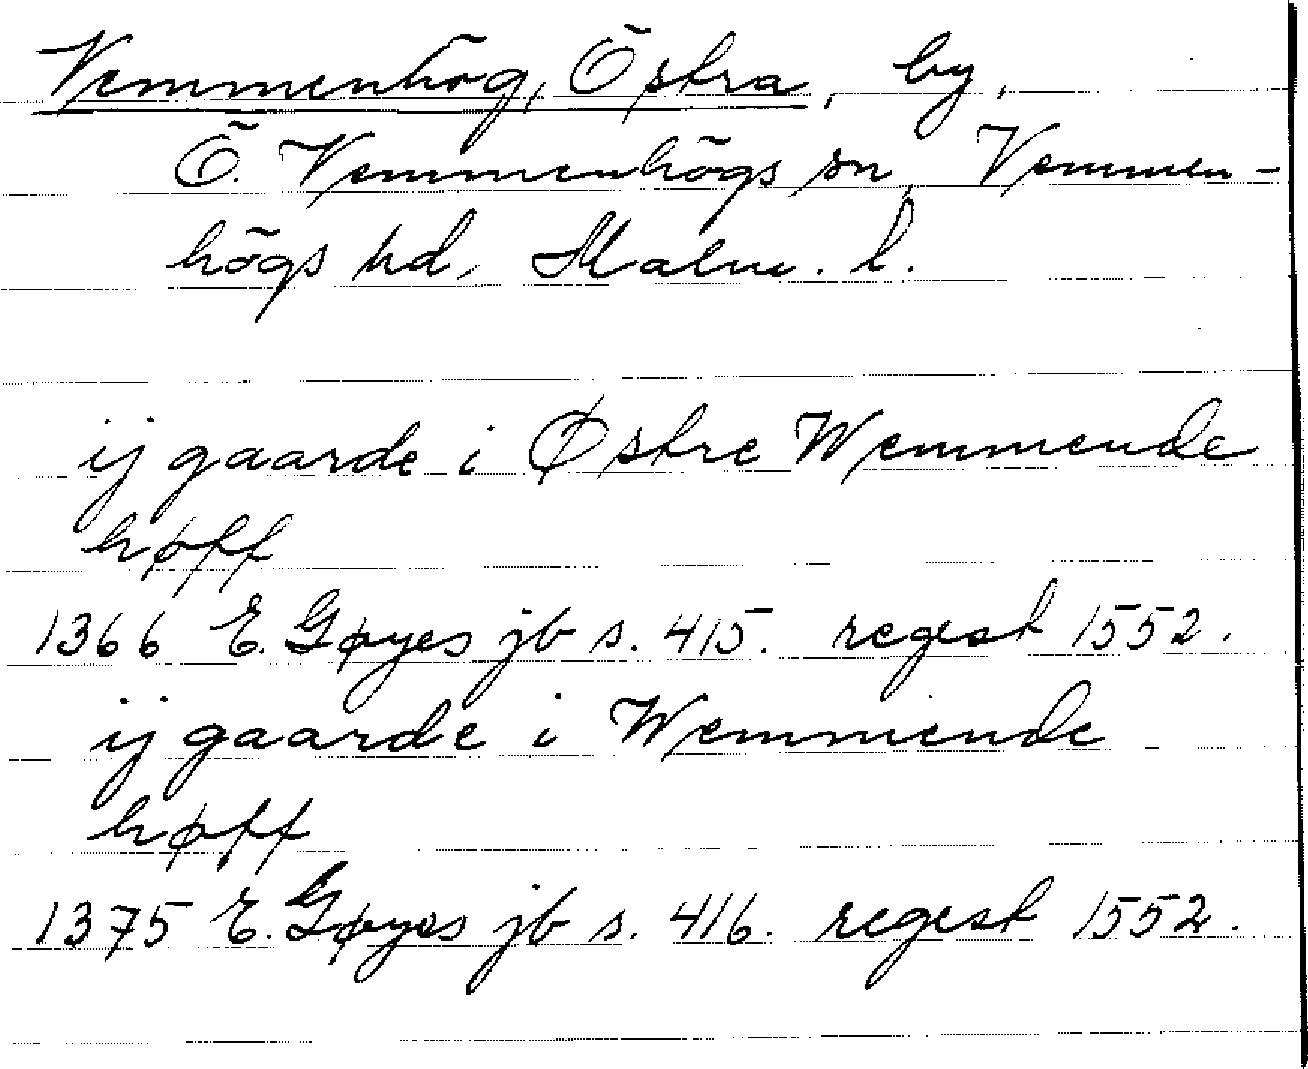 Vemmenhög, Östra, by,
Ö. Vemmenhögs sn, Vemmen-
högs hd, Malm. l.
ij gaarde i Østre Wemmende
høff
1366 E. Gøyes jb s. 415. regest 1552.
ij gaarde i Wemmende
høff
1375 E. Gøyes jb s. 416. regest 1552.